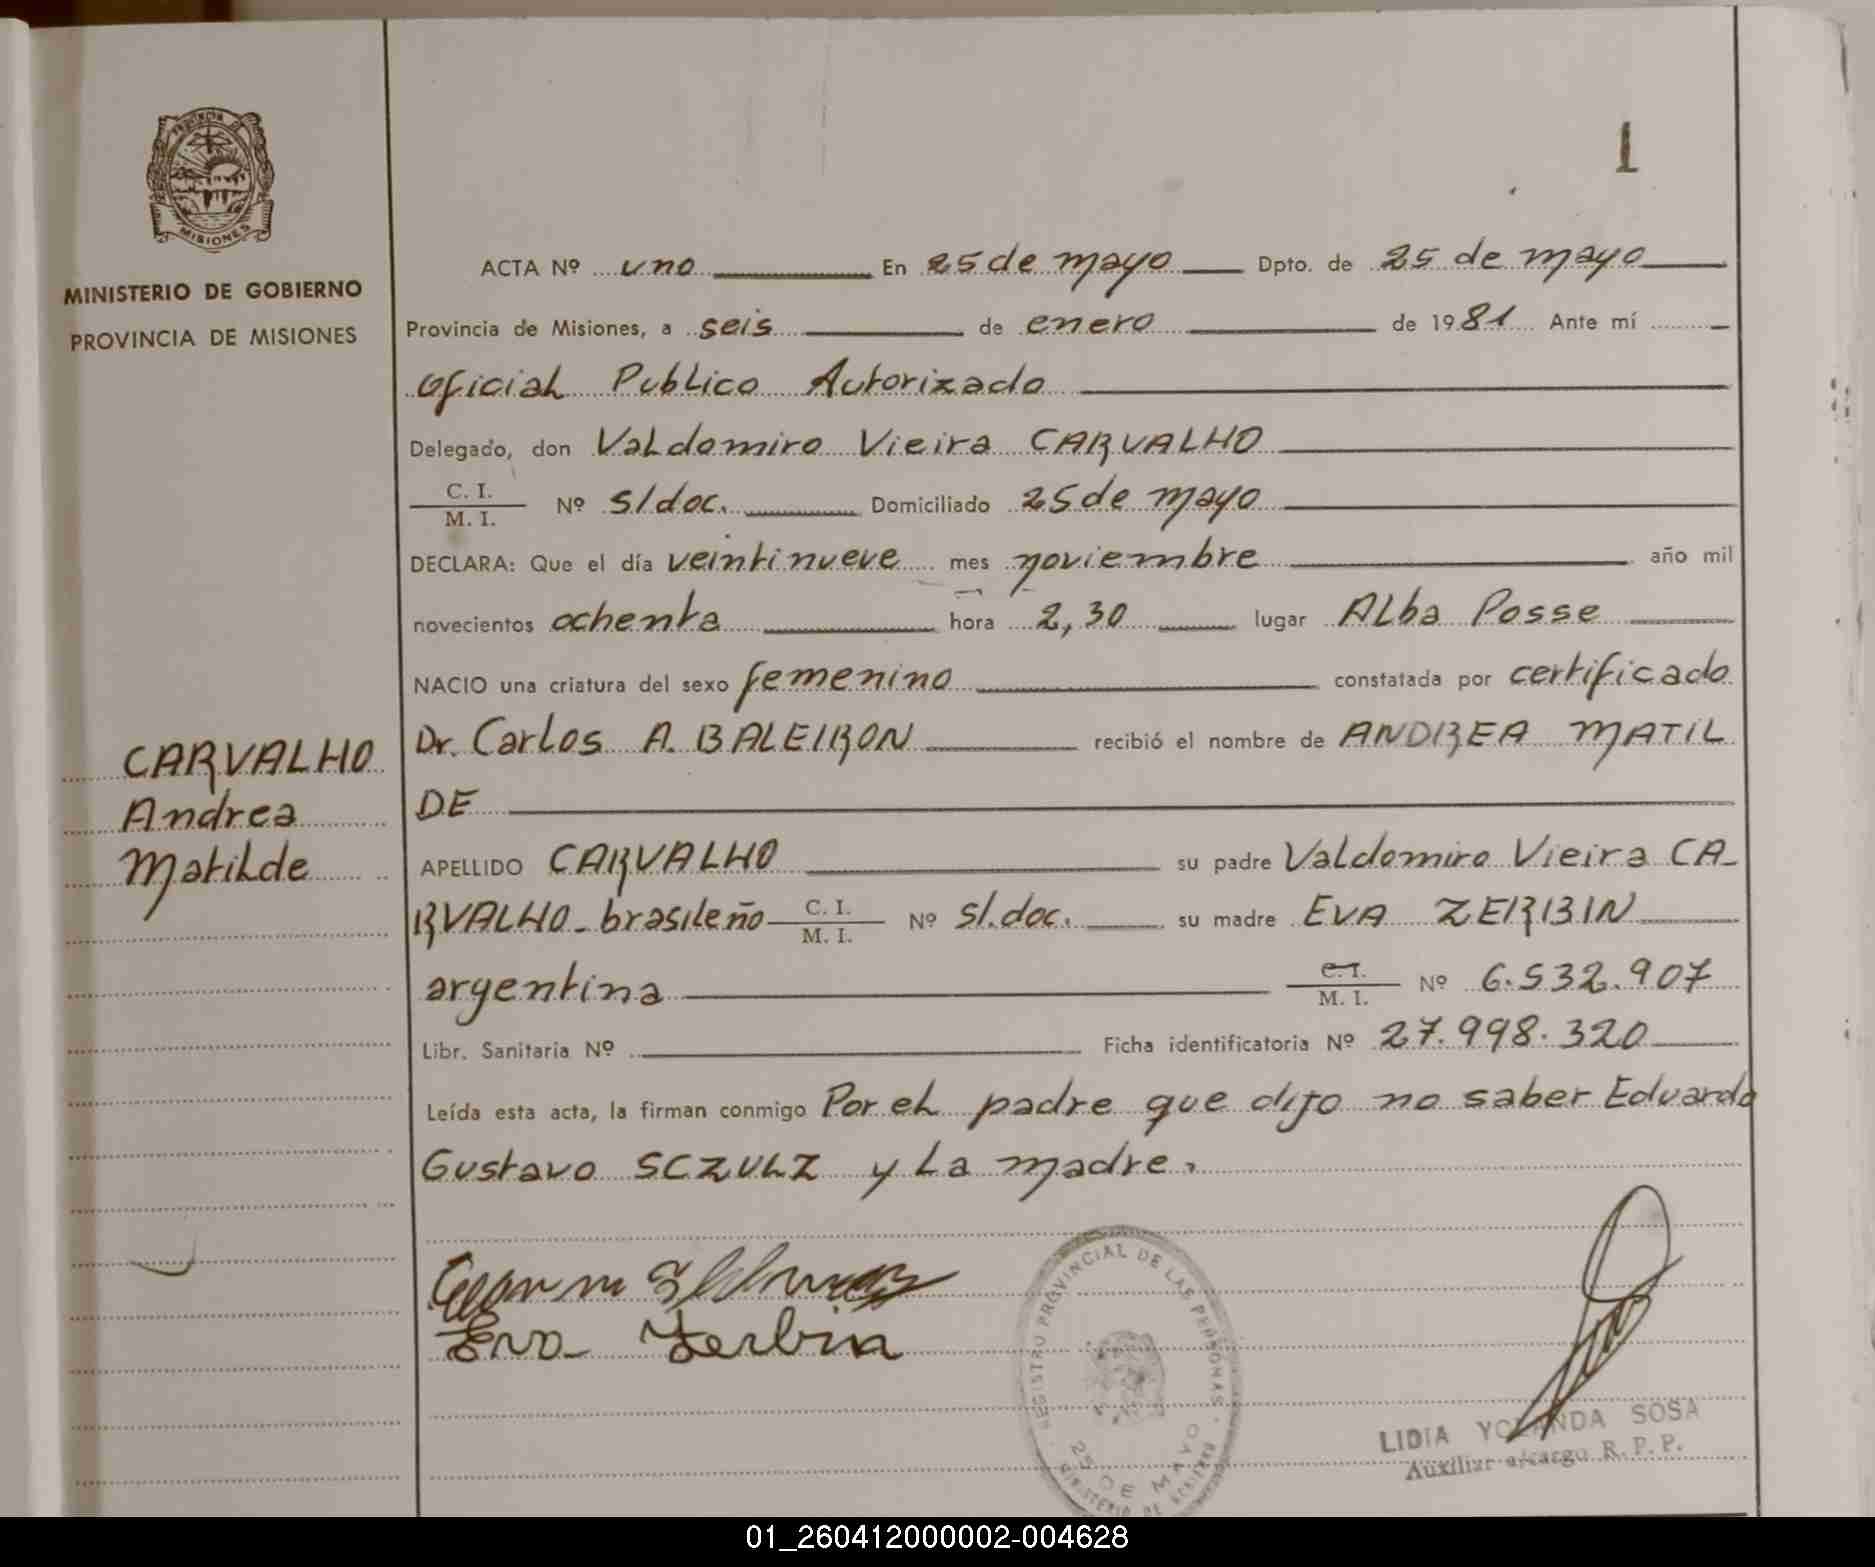 PROVINCIA DE
MISIONES
MINISTERIO DE GOBIERNO
PROVINCIA DE MISIONES
CARVALHO
Andrea
Matilde
1
ACTA Nº uno En 25 de mayo Dpto. de 25 de mayo
Provincia de Misiones, a seis de enero de 1981 Ante mí
oficial Publico Autorizado
Delegado, don Valdomiro Vieira CARVALHO
C. I.
M. I. Nº s/doc. Domiciliado 25 de mayo
DECLARA: Que el día veintinueve mes noviembre año mil
novecientos ochenta hora 2,30 lugar Alba Posse
NACIO una criatura del sexo femenino constatada por certificado
Dr. Carlos A. BALEIRON recibió el nombre de ANDREA MATIL
DE
APELLIDO CARVALHO su padre Valdomiro Vieira CA-
RVALHO- brasileño C. I. M. I. Nº s/.doc. su madre EVA ZERBIN
argentina C. I. M. I. Nº 6.532.907
Libr. Sanitaria Nº Ficha identificatoria Nº 27.998.320
Leída esta acta, la firman conmigo Por el padre que dijo no saber Eduardo
Gustavo SCZULZ y la madre.
Eva Zerbin
REGISTRO PROVINCIAL DE LAS PERSONAS
25 DE MAYO
MINISTERIO DE GOBIERNO
LIDIA YOLANDA SOSA
Auxiliar a/cargo R. P. P.
01_260412000002-004628